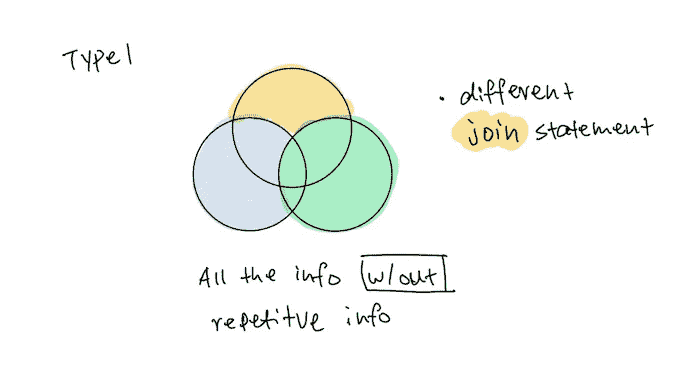 Type 1
• different
join statement
All the info w/out
repetitve info